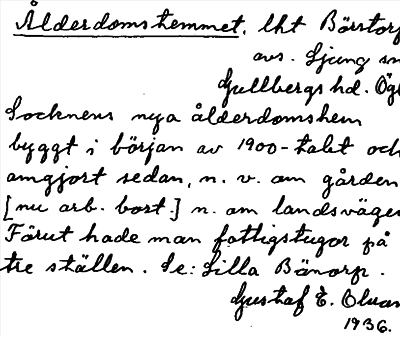 Ålderdomshemmet, lht Börstorp
avs. Ljung sn
Gullbergs hd. Ögl
Socknens nya ålderdomshem
byggt i början av 1900-talet och
omgjort sedan, n. v. om gården
[nu arb. bort.] n. om landsvägen
Förut hade man fattigstugor på
tre ställen. Se: Lilla Bänorp.
Gustaf E. Olvan
1936.